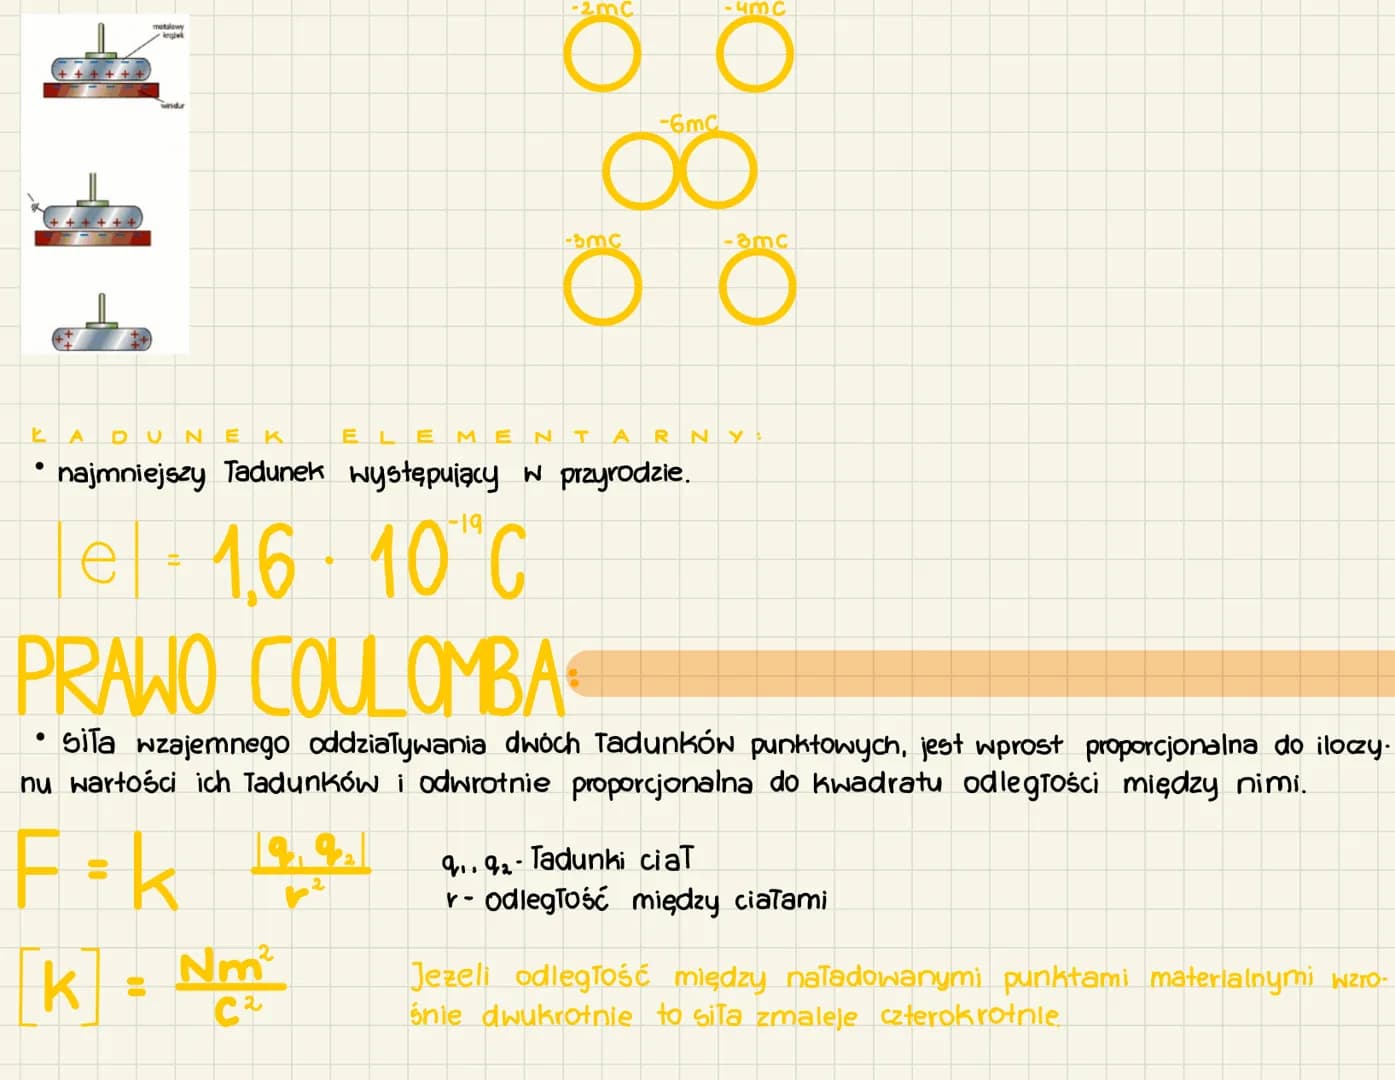 metalowy
krążek
winidur
-2mC -4mC
-6mC
-3mC -3mC
ŁADUNEK ELEMENTARNY:
• najmniejszy ładunek występujący w przyrodzie.
|e| = 1,6 · 10⁻¹⁹ C
PRAWO COULOMBA:
• siła wzajemnego oddziaływania dwóch ładunków punktowych, jest wprost proporcjonalna do iloczy-
nu wartości ich ładunków i odwrotnie proporcjonalna do kwadratu odległości między nimi.
F = k |q₁ q₂| / r²
q₁, q₂ - ładunki ciał
r - odległość między ciałami
[k] = Nm² / C²
Jeżeli odległość między naładowanymi punktami materialnymi wzro-
śnie dwukrotnie to siła zmaleje czterokrotnie.